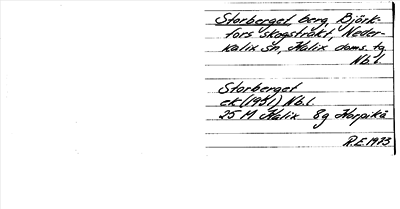 Storberget berg, Björk-
fors skogstrakt, Neder-
kalix sn, Kalix doms. tg
Nb.l.
Storberget
ek (1951) Nb.l.
25 M Kalix 8g Korpikå
R.E. 1973